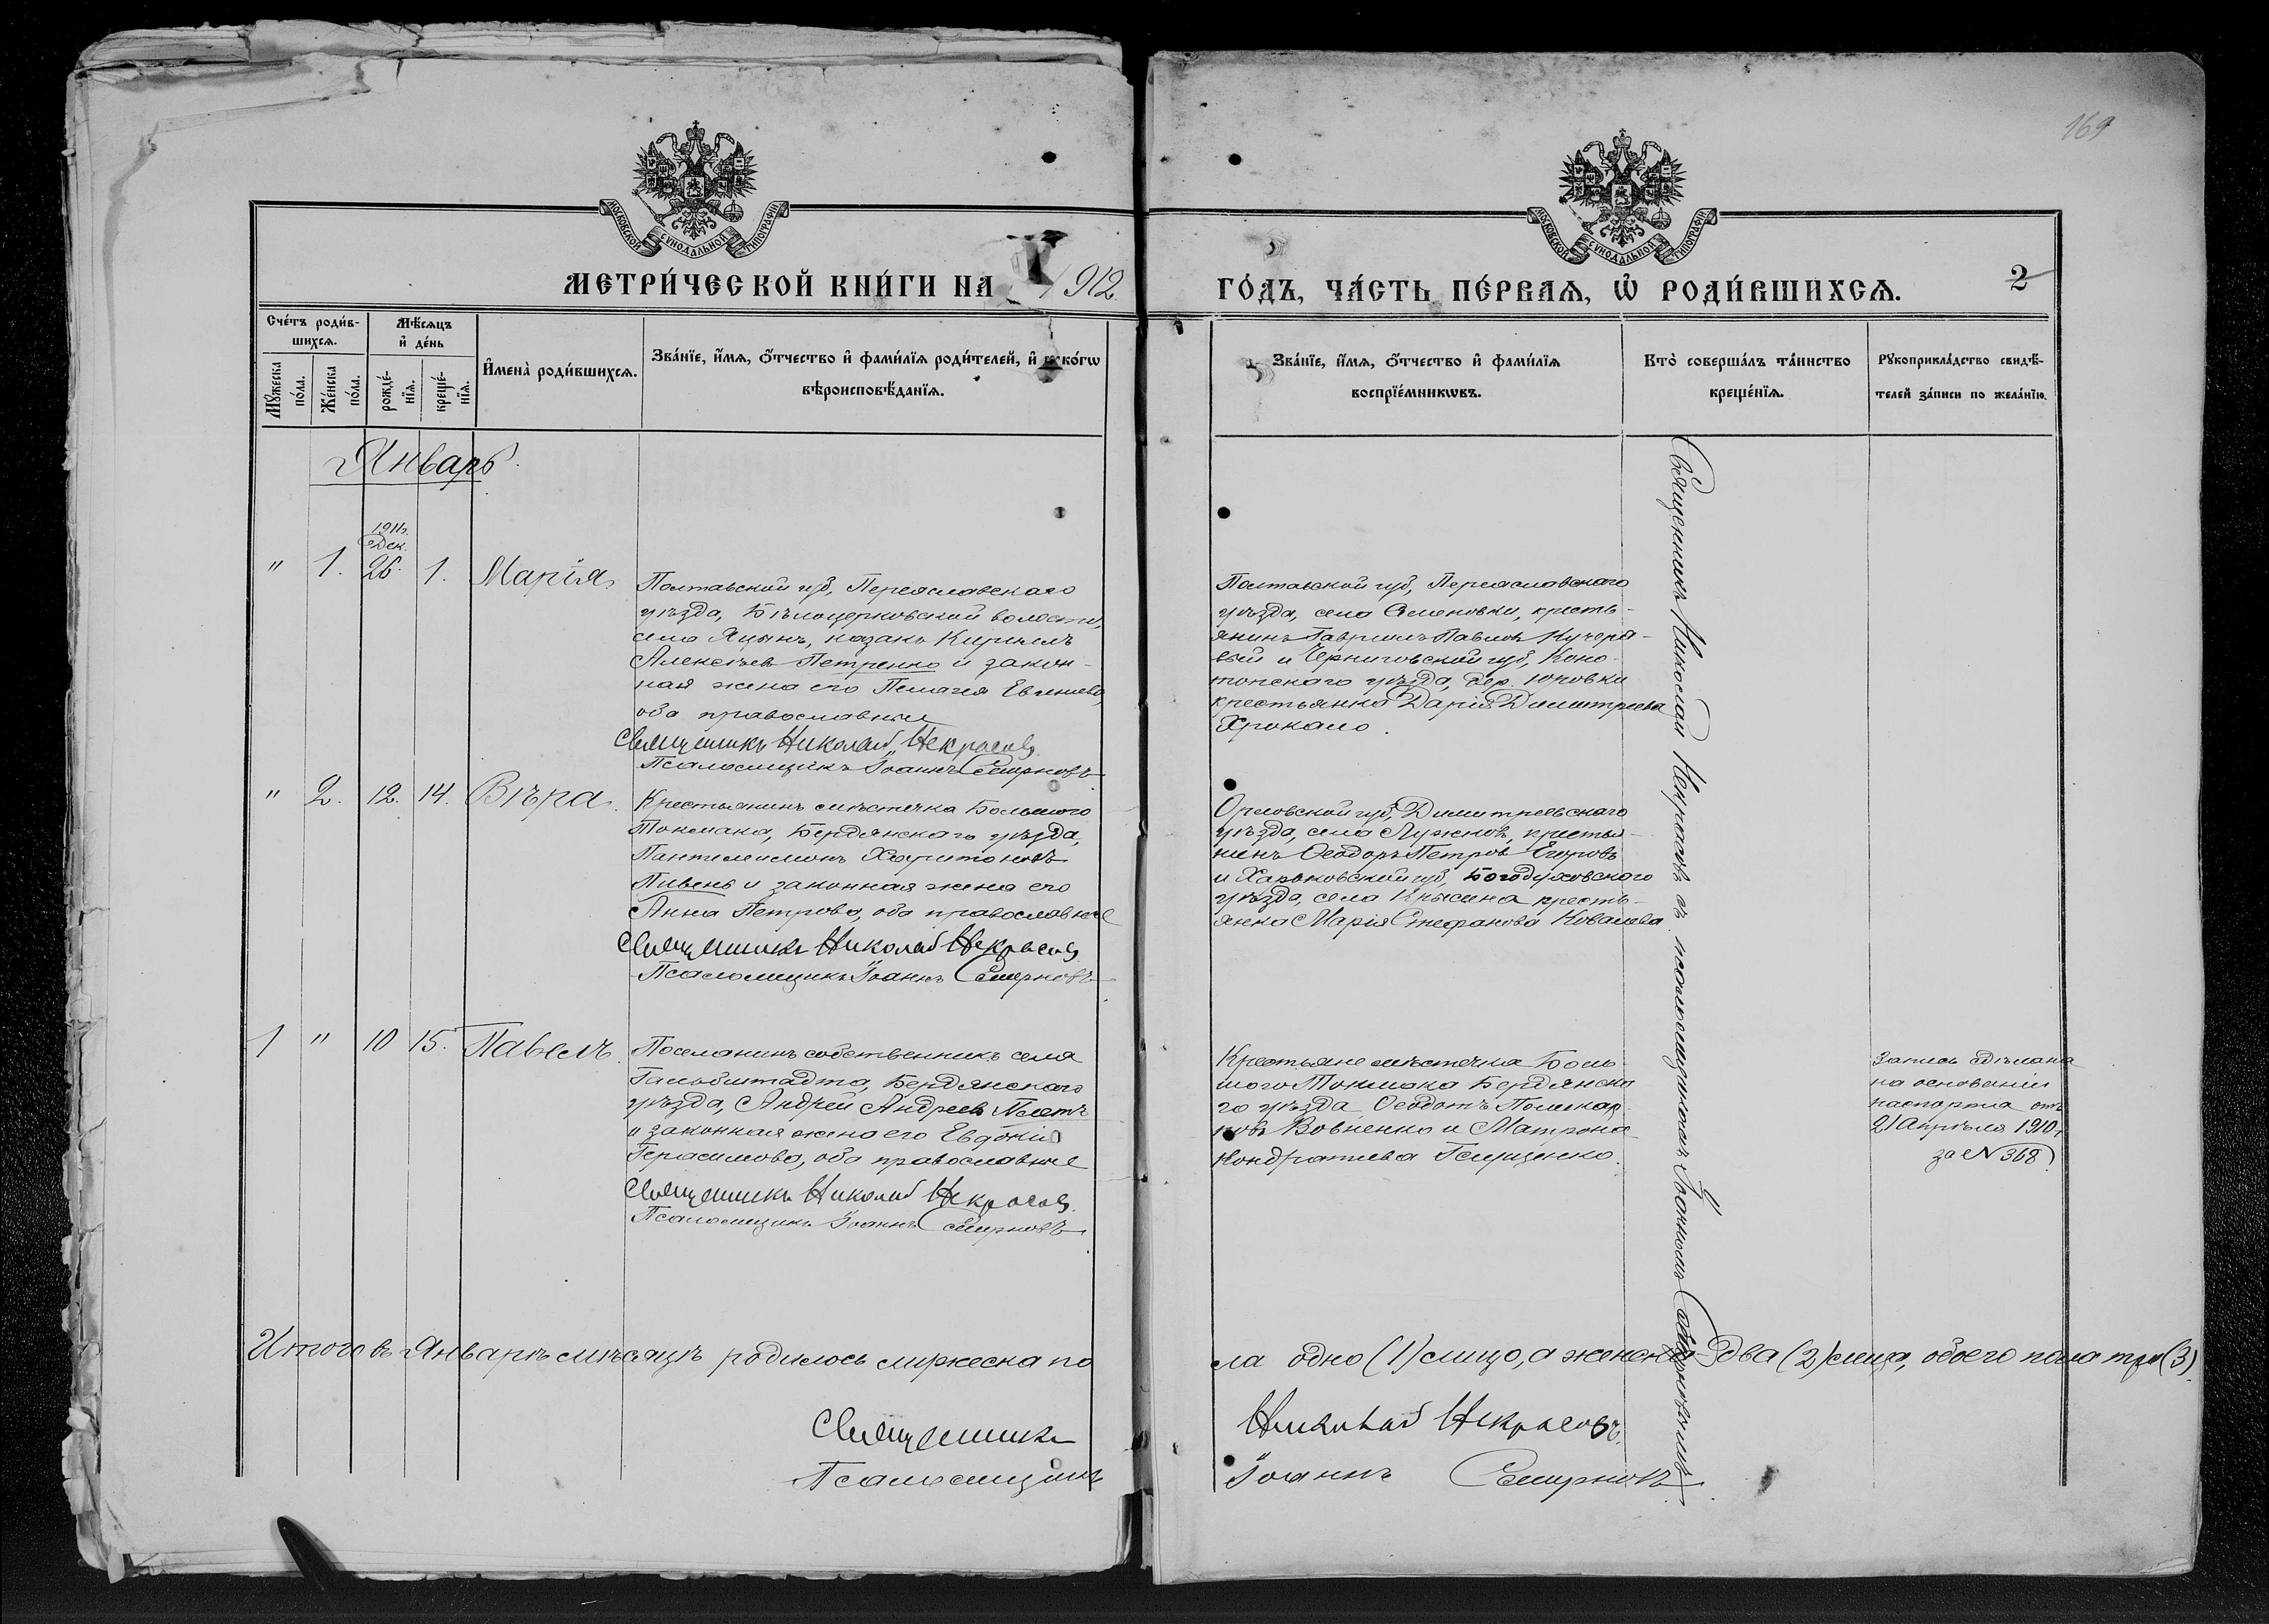 169
МОСКОВСКОЙ СУНОДАЛЬНОЙ ТИПОГРАФІИ
МОСКОВСКОЙ СУНОДАЛЬНОЙ ТИПОГРАФІИ
МЕТРИ́ЧЕСКОЙ КНИ́ГИ НА 1912
ГО́ДЪ, ЧА́СТЬ ПЕ́РВАѦ, Ѡ҆ РОДИ́ВШИХСѦ.
2
Сче́тъ роди́в-
шихсѧ.
Мꙋ́жеска по́ла.
Же́нска по́ла.
Мѣ́сѧцъ
и҆ де́нь
рожде́-
нїѧ.
креще́-
нїѧ.
И҆мена̀ роди́вшихсѧ.
Зва́нїе, и҆́мѧ, ѻ҆́тчество и҆ фами́лїѧ роди́телей, и҆ ко́гѡ
вѣроисповѣ́данїѧ.
Зва́нїе, и҆́мѧ, ѻ҆́тчество и҆ фами́лїѧ
воспрїе́мникѡвъ.
Кто̀ соверша́лъ та́инство
креще́нїѧ.
Рꙋкоприкла́дство свидѣ́-
телей за́писи по жела́нїю.
Январь.
1911г.
Дек.
" 1. 26. 1. Марія
Полтавской губ, Переяславскаго
уѣзда, Бѣлоцерковской волости,
села Яцынъ, казакъ Кириллъ
Алексѣевъ Петренко и закон-
ная жена его Пелагея
оба православные
Священникъ Николай Некрасовъ
Псаломщикъ Іоаннъ Смирновъ
Полтавской губ, Переяславского
уѣзда, села Семеновки, кресть-
янинъ Гавріилъ Павловъ Кучеря-
вый и Черниговской губ, Коно-
топскаго уѣзда, дер. Юровки
крестьянка Дарія Димитріева
Хрокало.
" 2. 12. 14. Вѣра.
Крестьянинъ мѣстечка Большого
Токмака, Бердянскаго уѣзда,
Пантелеимонъ Харитоновъ
Пивень и законная жена его
Анна Петрова, оба православные
Священникъ Николай Некрасовъ
Псаломщикъ Іоаннъ Смирновъ
Орловской губ, Димитріевскаго
уѣзда, села Лужковъ, крестья-
нинъ Ѳеодоръ Петровъ Егоровъ
и Харьковской губ, Богодуховского
уѣзда, села Крысина кресть-
янка Марія Стефанова Ковалева
1 " 10 15. Павелъ.
Поселянинъ собственникъ села
Гальбштадта, Бердянскаго
уѣзда, Андрей Андреевъ
и законная жена его Евдокія
Герасимова, оба православные
Священникъ Николай Некрасовъ.
Псаломщикъ Іоаннъ Смирновъ
Крестьяне мѣстечка Боль-
шого Токмака Бердянска-
го уѣзда Ѳеодотъ
Вовненко и Матрона
Кондратіева
Запись сдѣлана
на основаніи
паспорта отъ
21 Апрѣля 1910 г
за № 368.
Священникъ Николай Некрасовъ съ псаломщикомъ Іоанномъ Смирновымъ.
Итого въ Январѣ мѣсяцѣ родилось мужеска по
ла одно (1) лицо, а женска два (2) лица, обоего пола три (3).
Священникъ
Николай Некрасовъ.
Псаломщикъ
Іоаннъ Смирновъ.